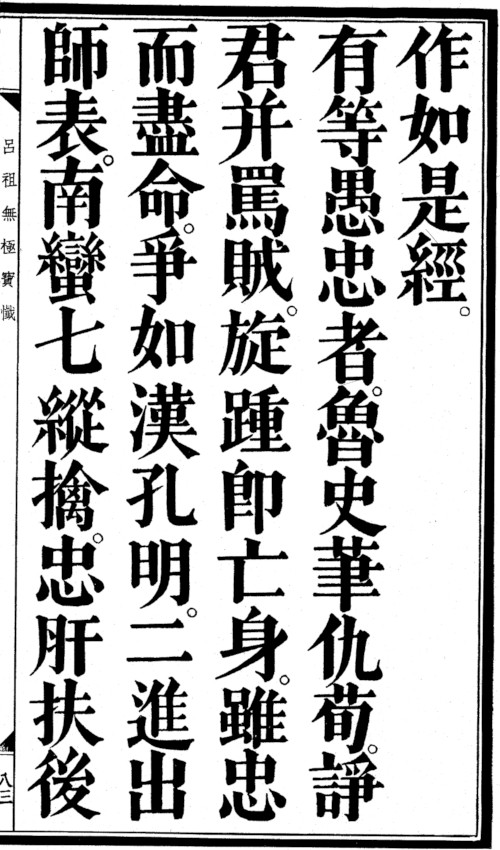 作如是經。
有等愚忠者。魯史華仇荀。諍
君并罵賊。旋踵卽亡身。雖忠
而盡命。爭如漢孔明。二進出
師表。南蠻七縱擒。忠肝扶後
呂祖無極寶懺
八三